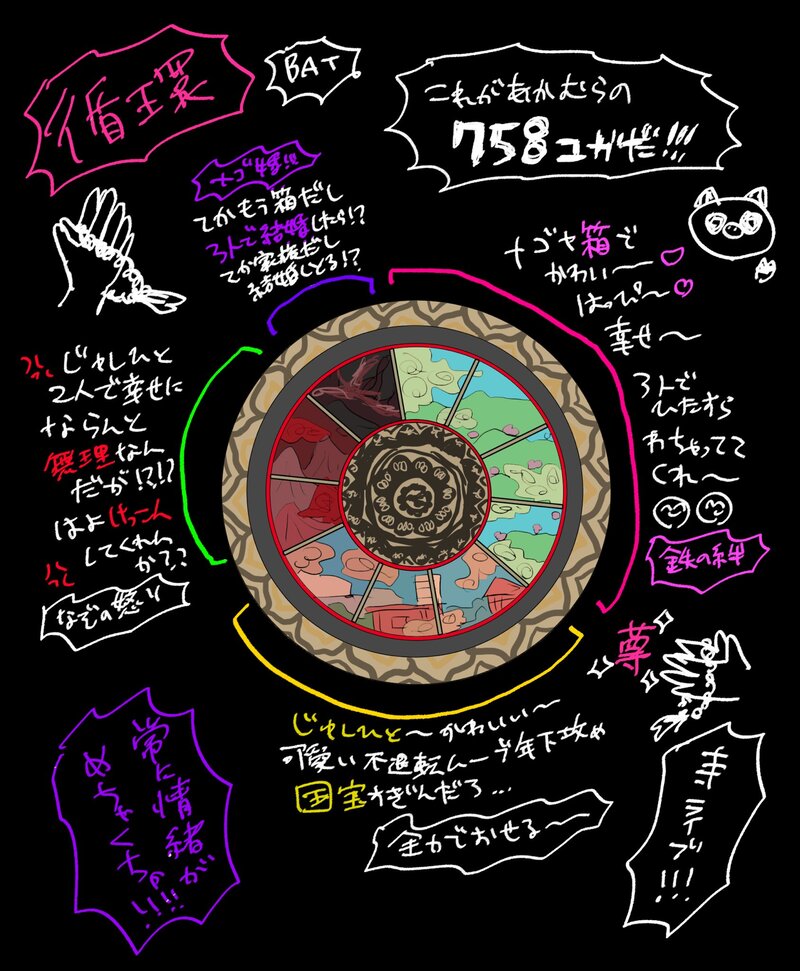 循環
BAT
これがあかむらの
758ヨガだ!!!
ナゴ爆!!!
てかもう箱だし
3人で結婚したら!?
てか家族だし
結婚しとる!?
ナゴヤ箱で
かわい〜
はっぴ〜
幸せ〜
3人で
ひたすら
わちゃってて
くれ〜
鉄の絆
じゃしひと
2人で幸せに
ならんと
無理なん
だが!?!?
はよけっこん
してくれん
か??
なぞの怒り
尊
じゃしひと〜かわいい〜
可愛い不退転ムーブ年下攻め
国宝すぎんだろ…
全力でおせる〜
常に情緒が
めちゃくちゃ!!!!